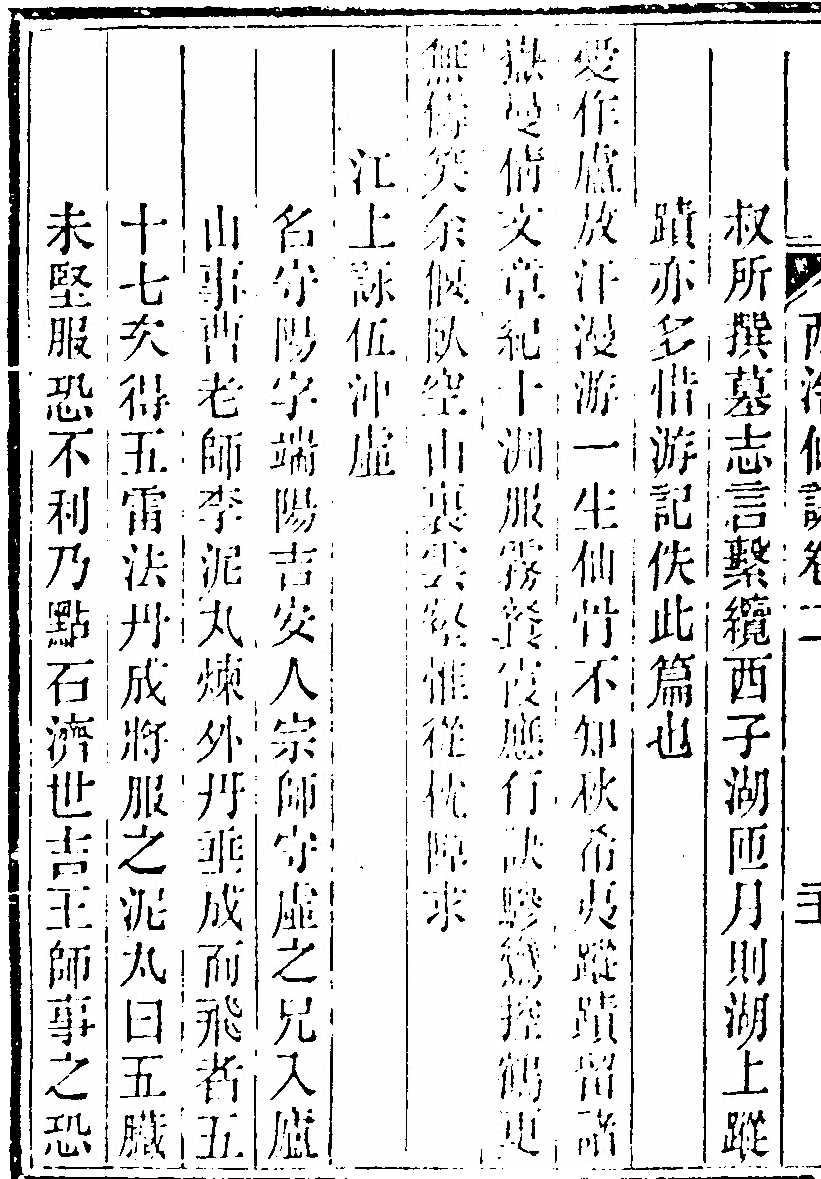 西泠仙詠卷二
叔所撰墓志言繫纜西子湖匝月則湖上蹤
蹟亦多惜游記佚此篇也
愛作廬敖汗漫游一生仙骨不知秋希夷蹤蹟留諸
嶽曼倩文章紀十洲服霧餐霞應行訣驂鸞控鶴更
無儔笑余偃臥空山裏雲壑惟從枕障求
江上詠伍沖虛
名守陽字端陽吉安人宗師守虛之兄入廬
山事曹老師李泥丸煉外丹垂成而飛者五
十七次得五雷法丹成將服之泥丸曰五臟
未堅服恐不利乃點石濟世吉王師事之恐